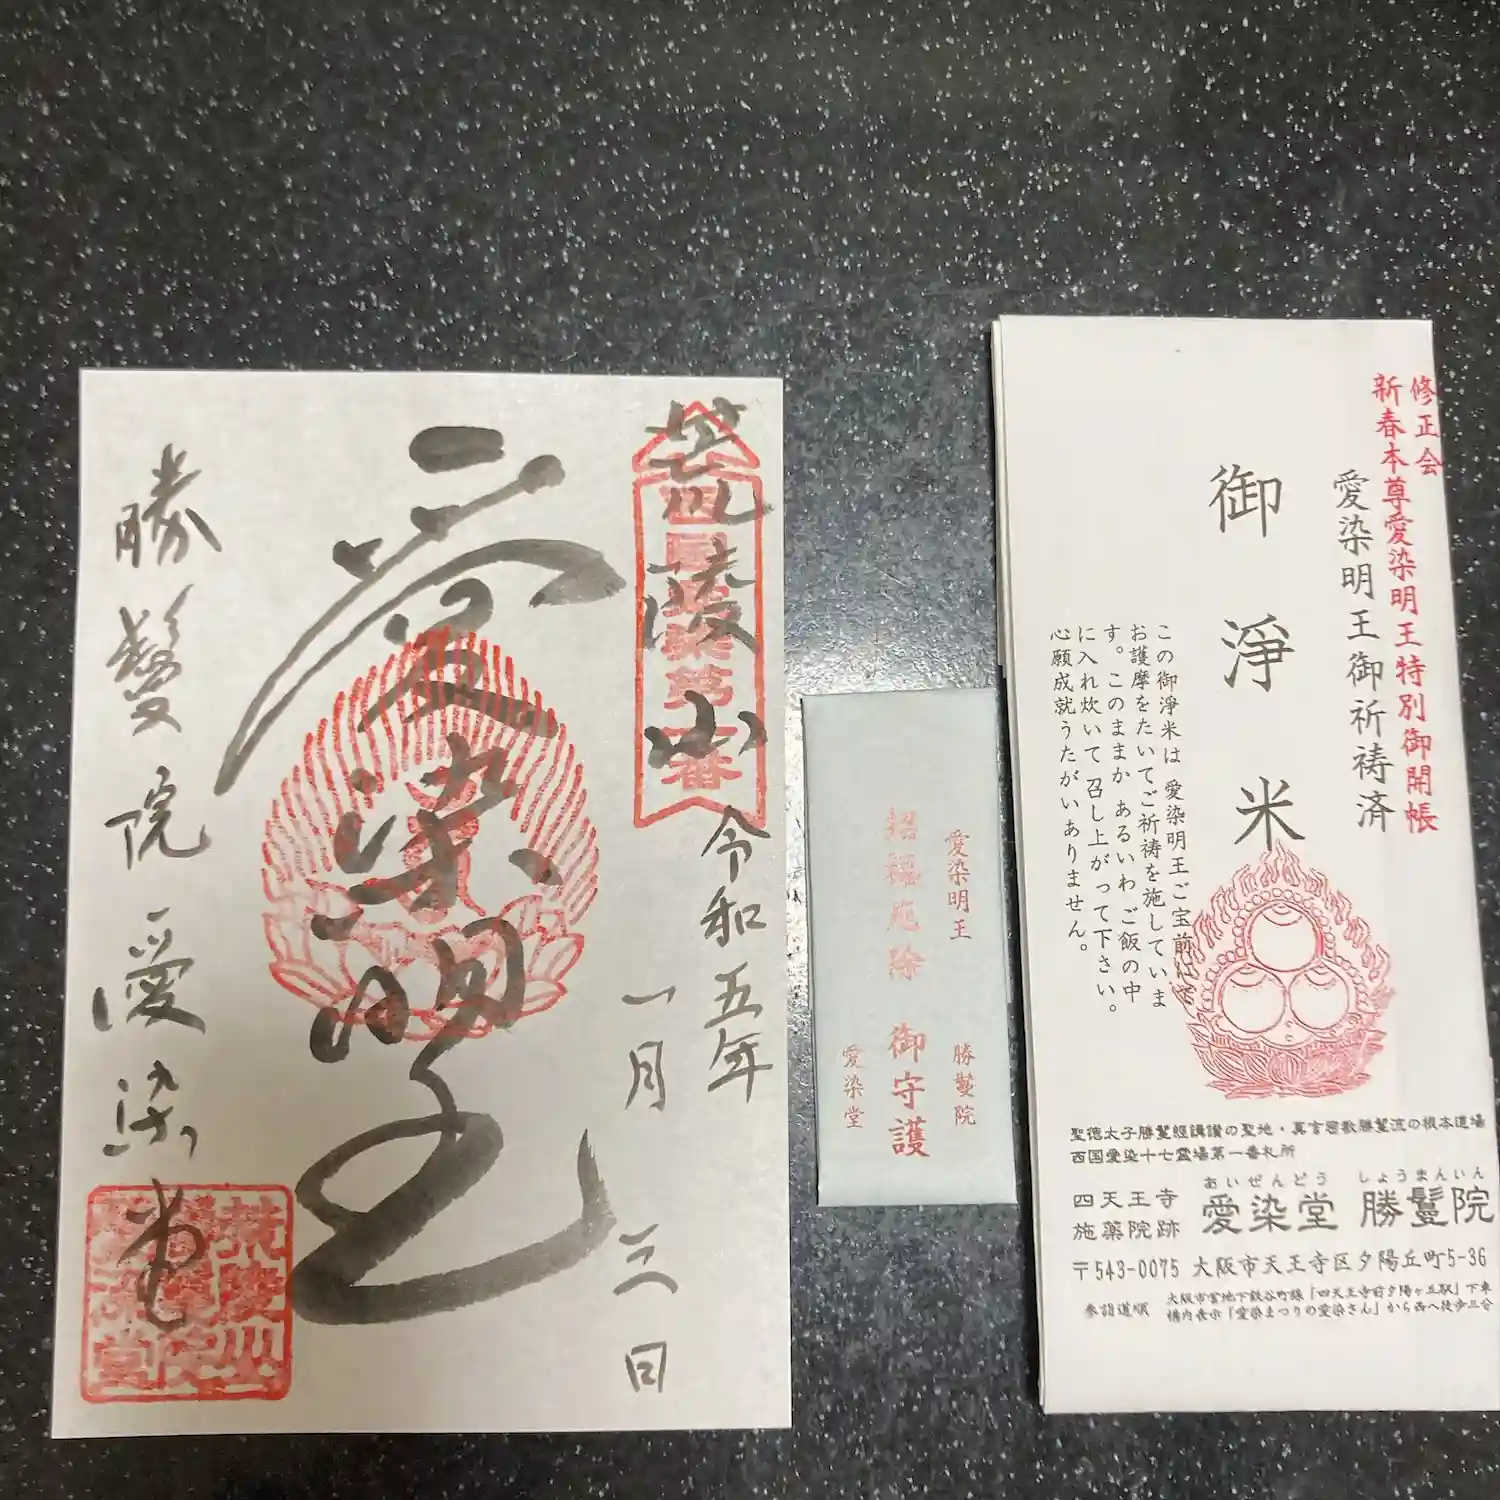 荒陵山
西国愛染第一番
令和五年
一月三日
愛染明王
勝鬘院愛染堂
愛染明王
勝鬘院
招福厄除 御守護
愛染堂
修正会
新春本尊愛染明王特別御開帳
愛染明王御祈祷済
御淨米
この御淨米は 愛染明王ご宝前にて
お護摩をたいてご祈祷を施していま
す。このままか あるいわ ご飯の中
に入れ炊いて召し上がって下さい。
心願成就うたがいありません。
聖徳太子勝鬘経講讃の聖地・真言密教勝鬘流の根本道場
西国愛染十七霊場第一番札所
四天王寺
施薬院跡
あいぜんどう しょうまんいん
愛染堂 勝鬘院
〒543-0075 大阪市天王寺区夕陽丘町5-36
参詣道順
大阪市営地下鉄谷町線「四天王寺前夕陽ヶ丘駅」下車
構内表示「愛染まつりの愛染さん」から西へ徒歩三分